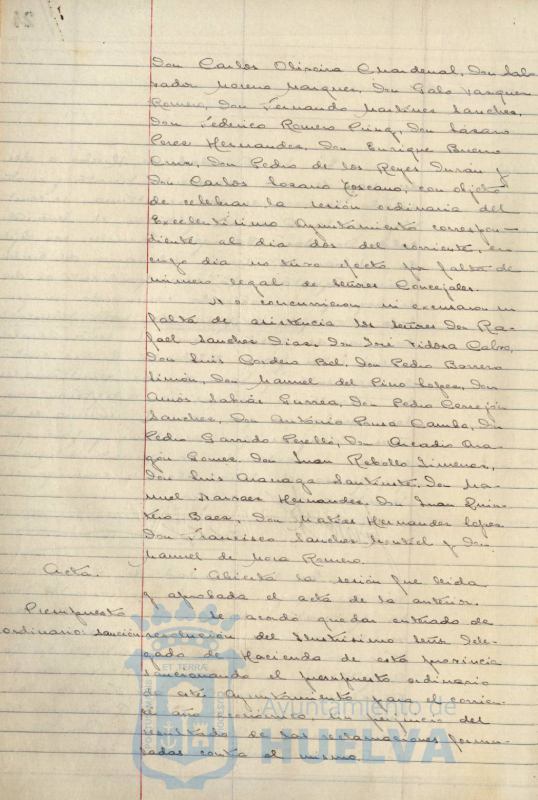 Don Carlos Oliveira Chardenal, Don Salva-
rador Moreno Marquez, Don Galo Vazquez
Romero, Don Fernando Martinez Sanchez,
Don Federico Romero Don Lázaro
Perez Hernandez, Don Enrique Bueno
Cruz, Don Pedro de los Reyes Duran y
Don Carlos Lozano Toscano, con objeto
de celebrar la sesión ordinaria del
Excelentísimo Ayuntamiento correspon-
diente al dia dos del corriente, en
cuyo dia no tuvo efecto por falta de
número legal de señores Concejales.
No concurrieron ni excusaron su
falta de asistencia los señores Don Ra-
fael Sanchez Diaz, Don José Tidosa Calvo,
Don Luis Cordero Bel, Don Pedro Borrero
Limón, Don Manuel del Pino Lopez, Don
Amós Sabrás Gurrea, Don Pedro Cerrejón
Sanchez, Don Antonio Ponce Don
Pedro Garrido Perelló, Don Arcadio Ara-
gón Gomez, Don Juan Rebollo Jimenez,
Don Luis Aranaga Don Ma-
nuel Narvaez Hernandez, Don Juan Quin-
tero Baez, Don Matías Hernandez Lopez
Don Francisco Sanchez y Don
Manuel de Mora Romero.
Acta. Abierta la sesión fue leida
y aprobada el acta de la anterior.
Presupuesto Se acordó quedar enterado de
ordinario: sanción. resolución del Ilustrísimo Señor Dele-
gado de Hacienda de esta provincia
sancionando el presupuesto ordinario
de este Ayuntamiento para el corrien-
te año económico sin perjuicio del
resultado de las reclamaciones formu-
ladas contra el mismo.
ET TERRÆ
Ayuntamiento de
HUELVA